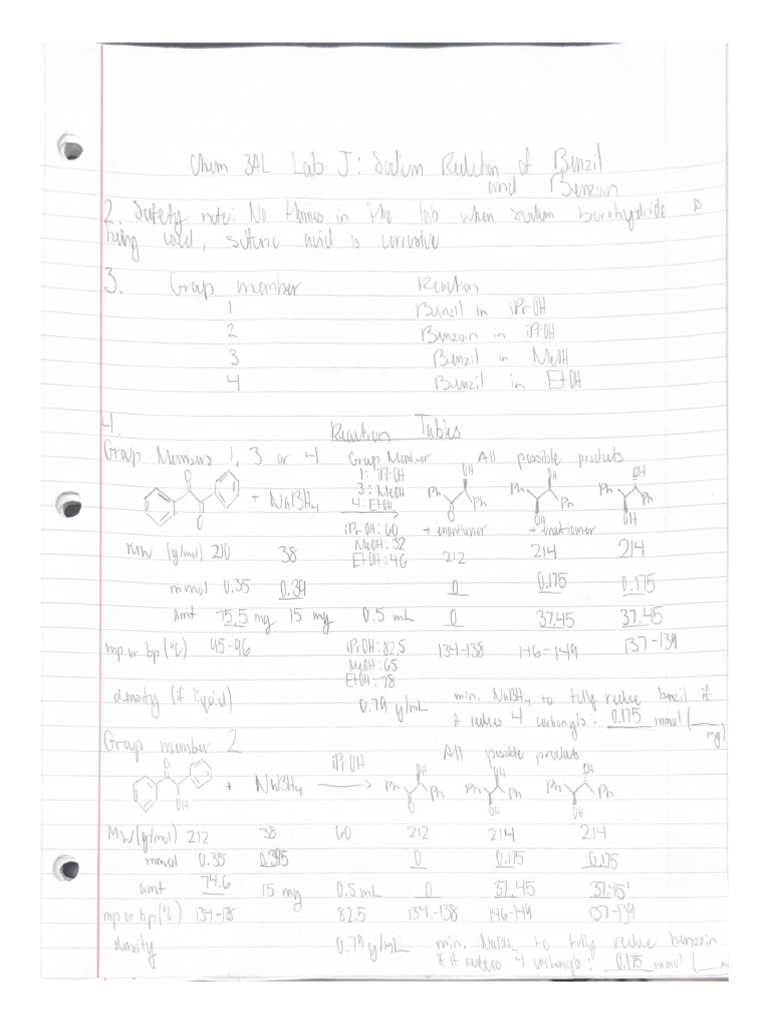 Chem 3AL Lab J: Sodium Reduction of Benzil
and Benzoin
2. Safety note: No flames in the lab when sodium borohydride is
being used, sulfuric acid is corrosive
3. Group member Reaction
1 Benzil in iPrOH
2 Benzoin in iPrOH
3 Benzil in MeOH
4 Benzil in EtOH
4. Reaction Tables
Group Members 1, 3 or 4 Group Member All possible products
1: iPrOH
3: MeOH
4: EtOH
O O + NaBH4 Ph OH Ph O Ph OH Ph OH Ph OH Ph OH
iPrOH: 60 + enantiomer + enantiomer
MeOH: 32
EtOH: 46
MW (g/mol) 210 38 212 214 214
mmol 0.35 0.39 0 0.175 0.175
amt 75.5 mg 15 mg 0.5 mL 0 37.45 37.45
mp or bp (°C) 95-96 iPrOH: 82.5 134-138 146-149 137-139
MeOH: 65
EtOH: 78
density (if liquid) 0.79 g/mL min. NaBH4 to fully reduce benzil if
it reduces 4 carbonyls: 0.175 mmol (___
mg)
Group member 2 iPrOH All possible products
O OH + NaBH4 Ph OH O Ph Ph OH OH Ph Ph OH OH Ph
MW (g/mol) 212 38 60 212 214 214
mmol 0.35 0.395 0 0.175 0.175
amt 74.6 15 mg 0.5 mL 0 37.45 37.45
mp or bp (°C) 134-138 82.5 134-138 146-149 137-139
density 0.79 g/mL min. NaBH4 to fully reduce benzoin
if it reduces 4 carbonyls: 0.175 mmol (__ m